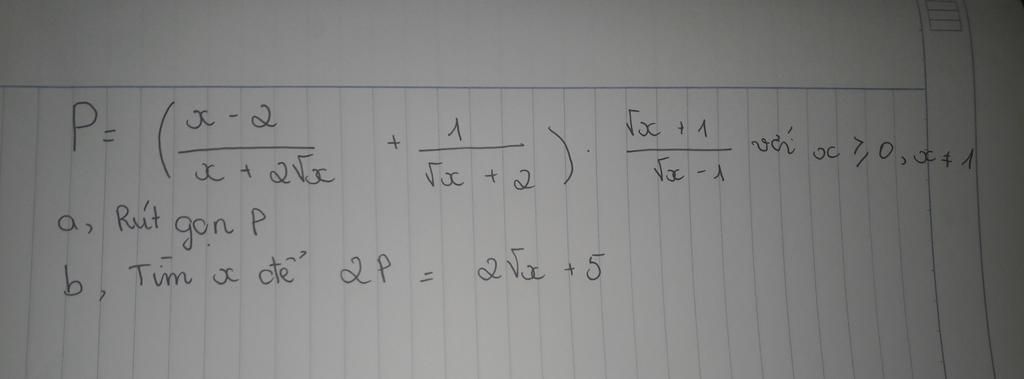 P = ( (x - 2)/(x + 2√x) + 1/(√x + 2) ) . (√x + 1)/(√x - 1) với x ≥ 0, x ≠ 1
a, Rút gọn P
b, Tìm x để 2P = 2√x + 5